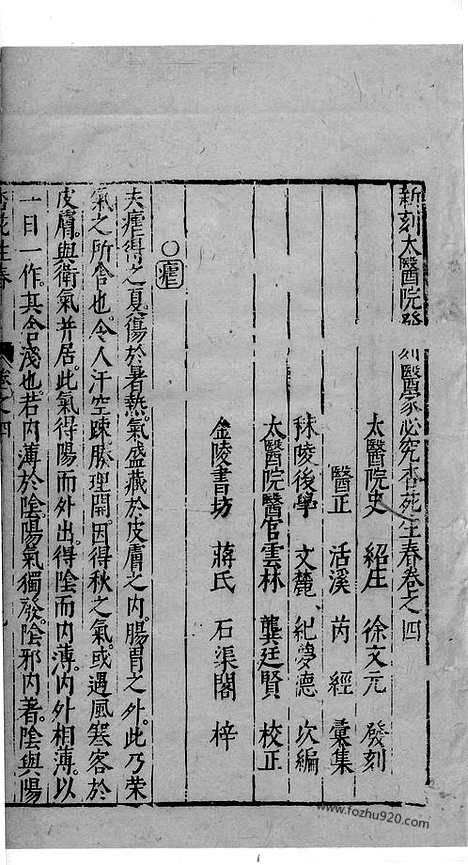 新刻太醫院發刻醫家必究杏苑生春卷之四
太醫院史 紹庄 徐文元 發刻
醫正 活溪 芮 經 彙集
秣陵後學 文麓 紀夢德 次編
太醫院醫官雲林 龔廷賢 校正
金陵書坊 蔣氏 石渠閣 梓
○瘧
夫瘧得之夏傷於暑熱氣盛藏於皮膚之內腸胃之外此乃荣
氣之所舍也令人汗空疎腠理開因得秋之氣或遇風寒客於
皮膚與衛氣并居此氣得陽而外出得陰而内薄内外相薄以
一日一作其舍淺也若内薄於陰陽氣獨發陰邪内著陰與陽
杏苑生春 卷之四
www.fozhu920.com